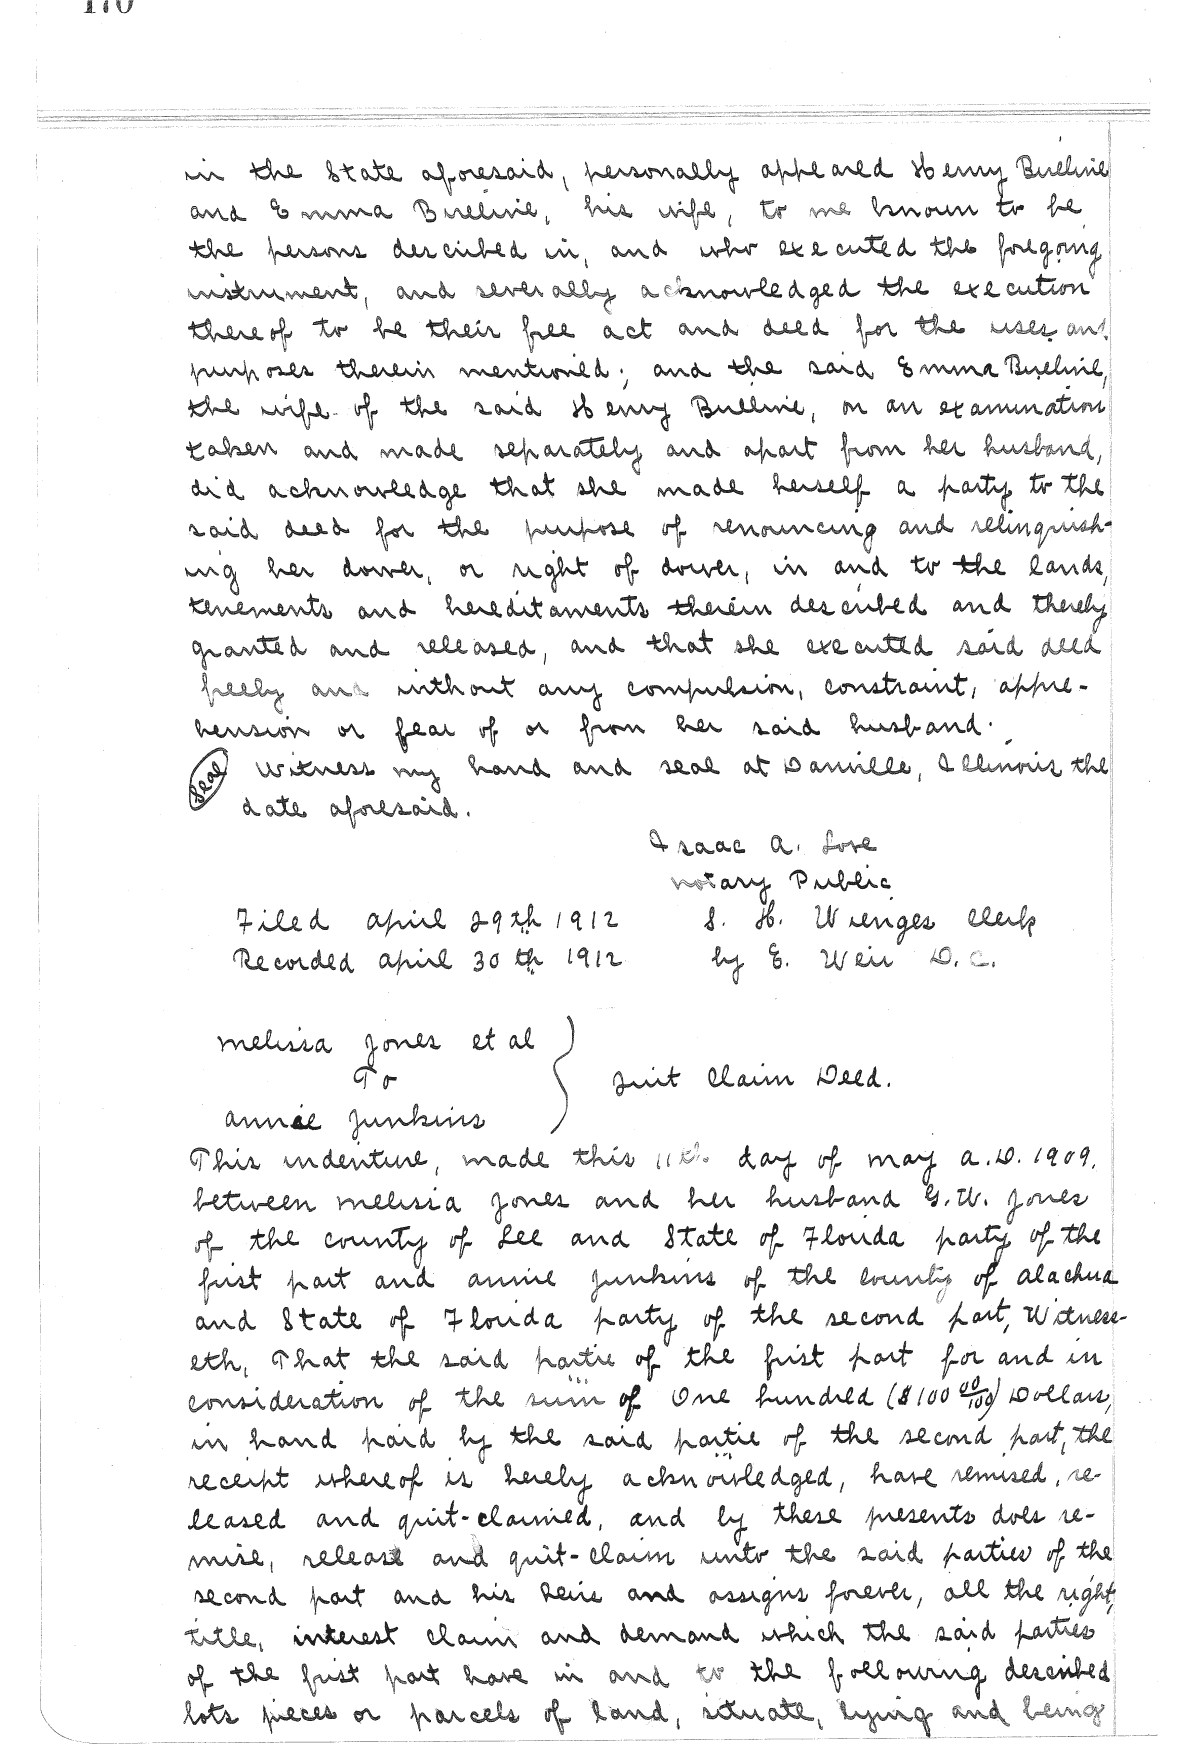 170
in the State aforesaid, personally appeared Henry Bueline
and Emma Bueline, his wife, to me known to be
the persons described in, and who executed the foregoing
instrument, and severally acknowledged the execution
thereof to be their free act and deed for the uses and
purposes therein mentioned; and the said Emma Bueline,
the wife of the said Henry Bueline, on an examination
taken and made separately and apart from her husband,
did acknowledge that she made herself a party to the
said deed for the purpose of renouncing and relinquish-
ing her dower, or right of dower, in and to the lands,
tenements and hereditaments therein described and thereby
granted and released, and that she executed said deed
freely and without any compulsion, constraint, appre-
hension or fear of or from her said husband.
Seal Witness my hand and seal at Danville, Illinois the
date aforesaid.
Isaac A. Love
Notary Public
Filed April 29th 1912 S. H. Wienges Clerk
Recorded April 30th 1912 by E. Weir D.C.
Melissa Jones et al
To } Quit Claim Deed.
Annie Junkins
This indenture, made this 11th day of May A.D. 1909.
between Melissa Jones and her husband G.W. Jones
of the county of Lee and State of Florida party of the
first part and Annie Junkins of the county of Alachua
and State of Florida party of the second part, Witness-
eth, That the said partie of the first part for and in
consideration of the sum of One hundred ($100 00/100) Dollars,
in hand paid by the said partie of the second part, the
receipt whereof is hereby acknowledged, have remised, re-
leased and quit-claimed, and by these presents does re-
mise, release and quit-claim unto the said parties of the
second part and his heirs and assigns forever, all the right,
title, interest claim and demand which the said parties
of the first part have in and to the following described
lots pieces or parcels of land, situate, lying and being